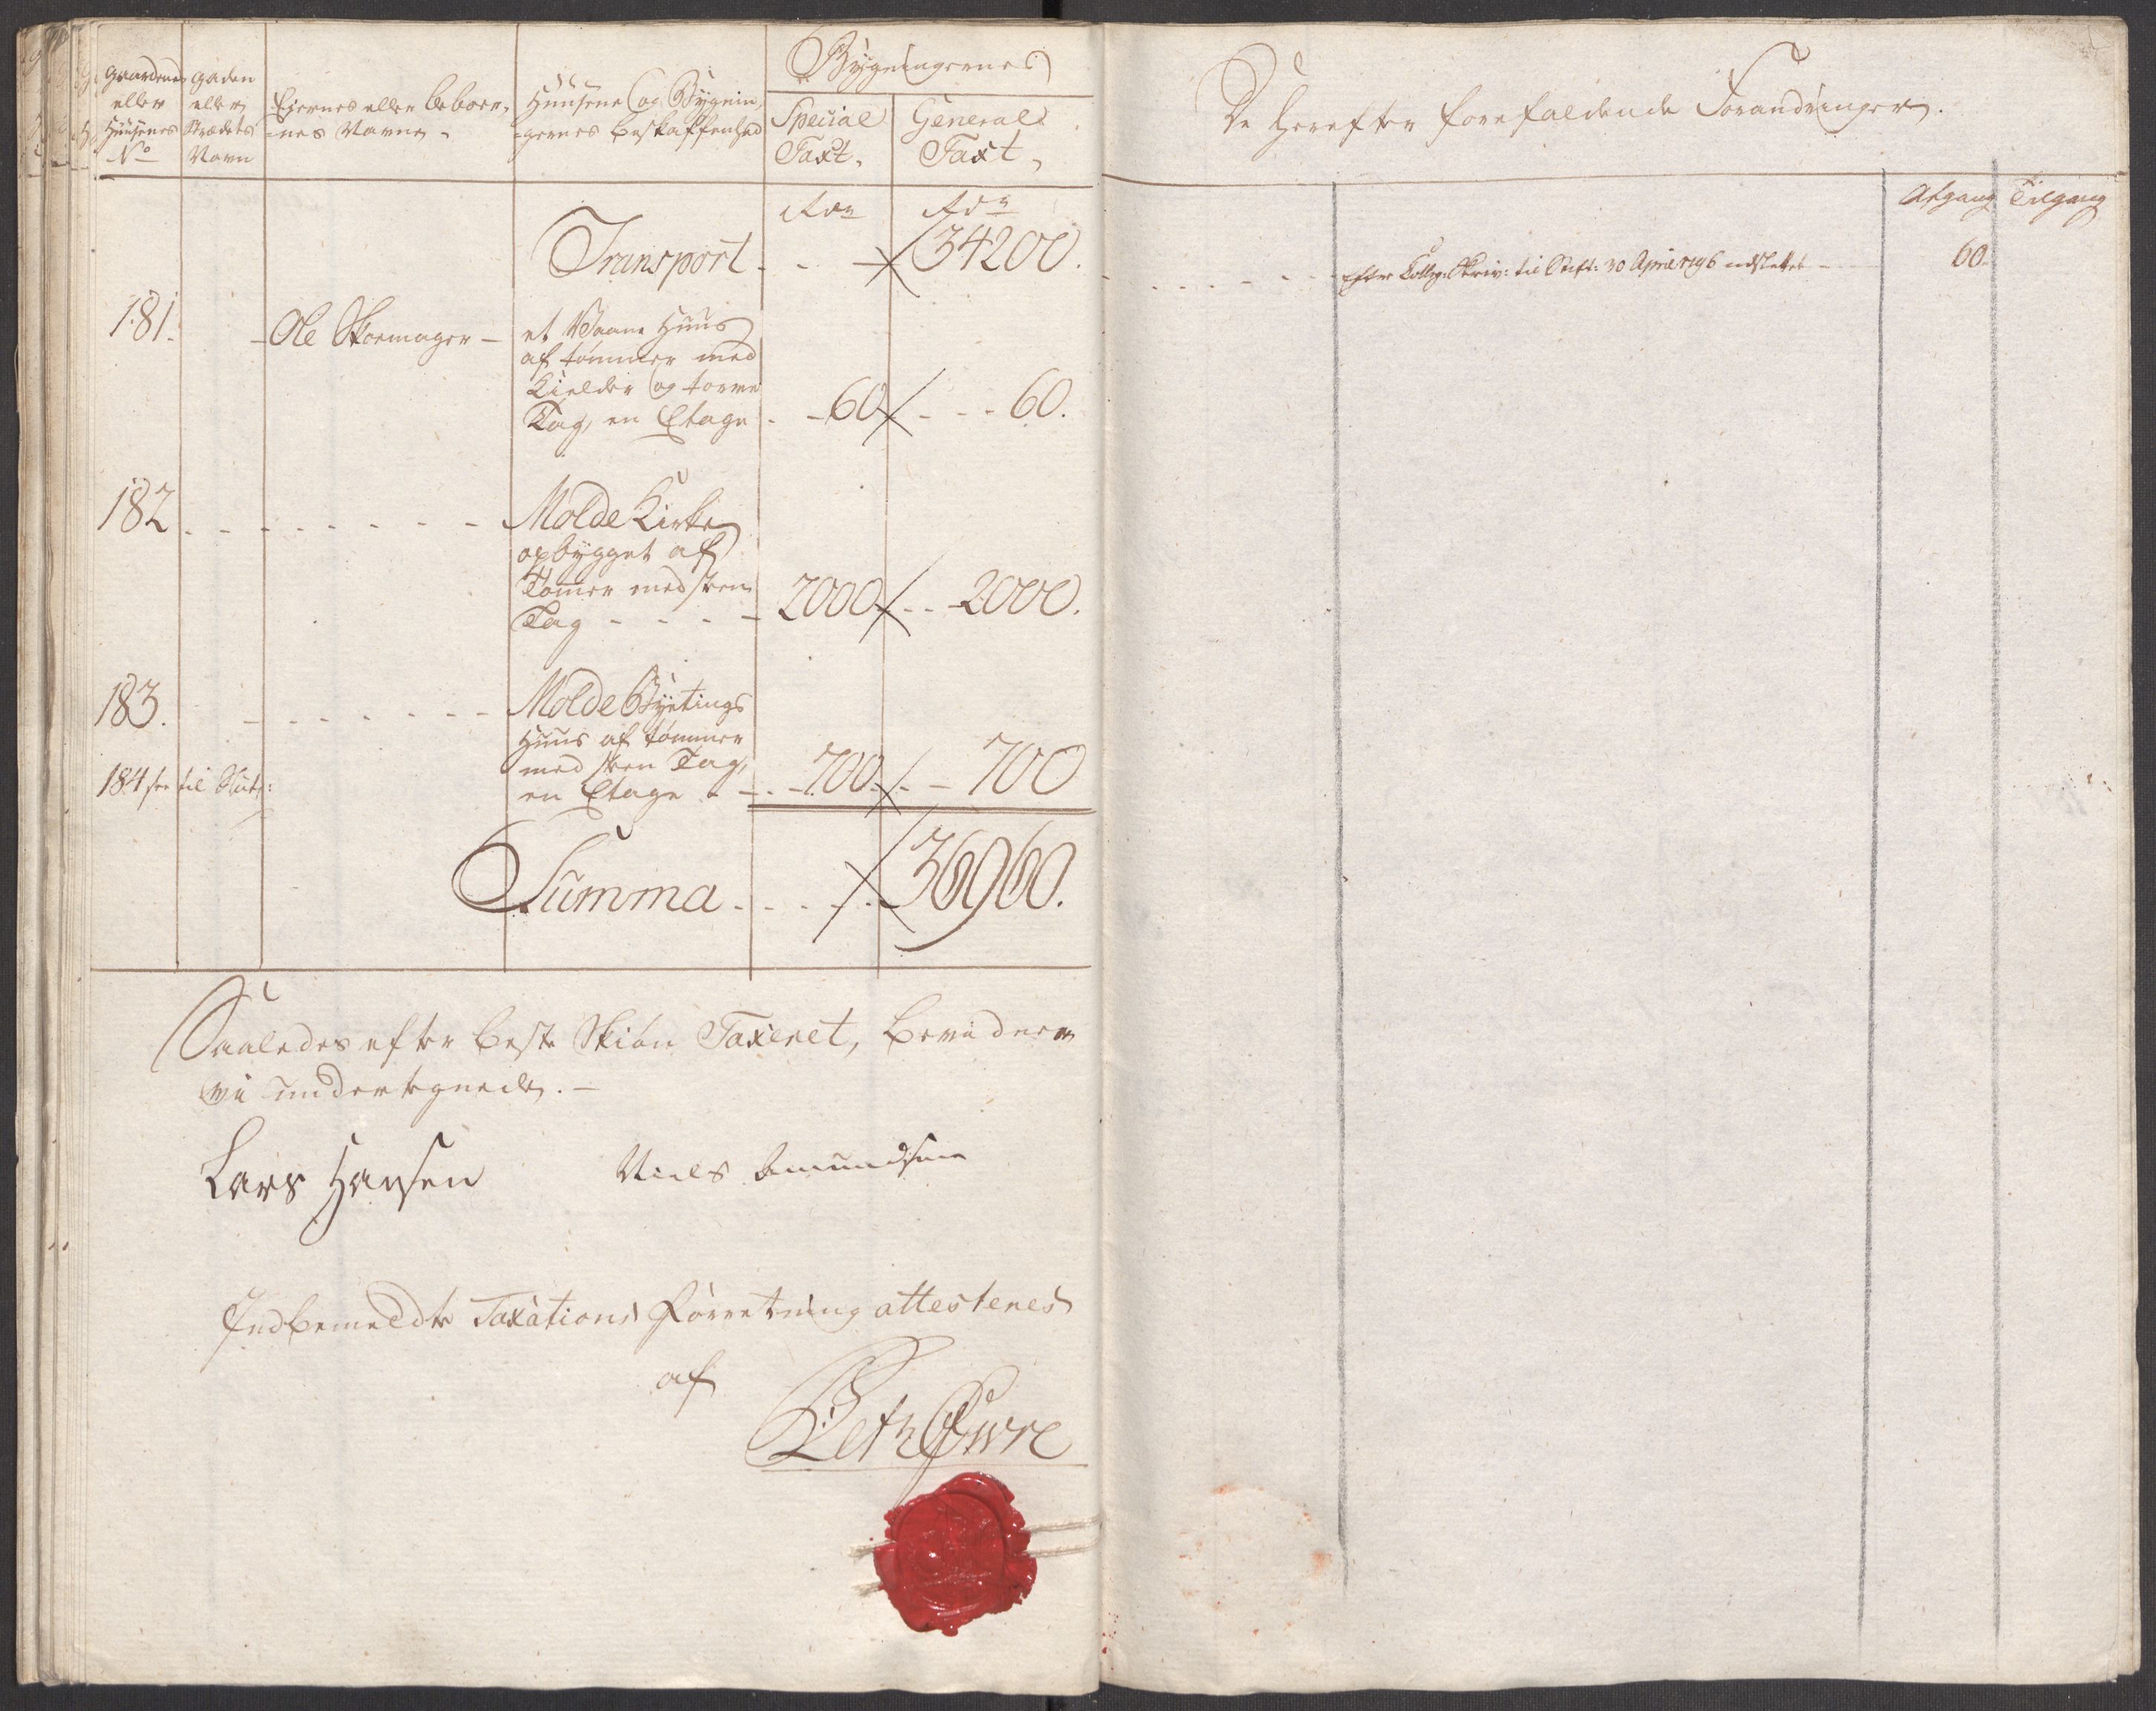 Gaardenes eller Huusenes No
Gaden eller Strædets Navn
Eiernes eller beboer-
nes Navne
Huusene og Bygnin-
gernes beskaffenhed
Bygningernes
Special Taxt.
General Taxt,
Rdr Rdr
Transport . . . 34200.
181. Ole Skoemager — et Vaane Huus
af tømmer med
Kielder og torve
Tag, en Etage . 60 . . . 60.
182 . . . . . . . Molde Kirke
opbygget af
Tømer med steen
Tag . . . . 2000 . . 2000.
183. . . . . . . . Molde Byetings
Huus af tømmer
med steen Tag,
en Etage . . . 700. . . 700
184 see til Slut:
Summa . . . . . 36960.
Saaledes efter beste Skiøn Taxeret, bevidner
vi undertegnede. —
Lars Hansen Niels Amundsen
Indbemeldte Taxations Forretning attesteres
af
Petr Owre
De Herefter forefaldende Forandringer.
Afgang Tilgang
Efter Colleg: Skriv: til Stift: 30 April 1796 udslettet — 60.